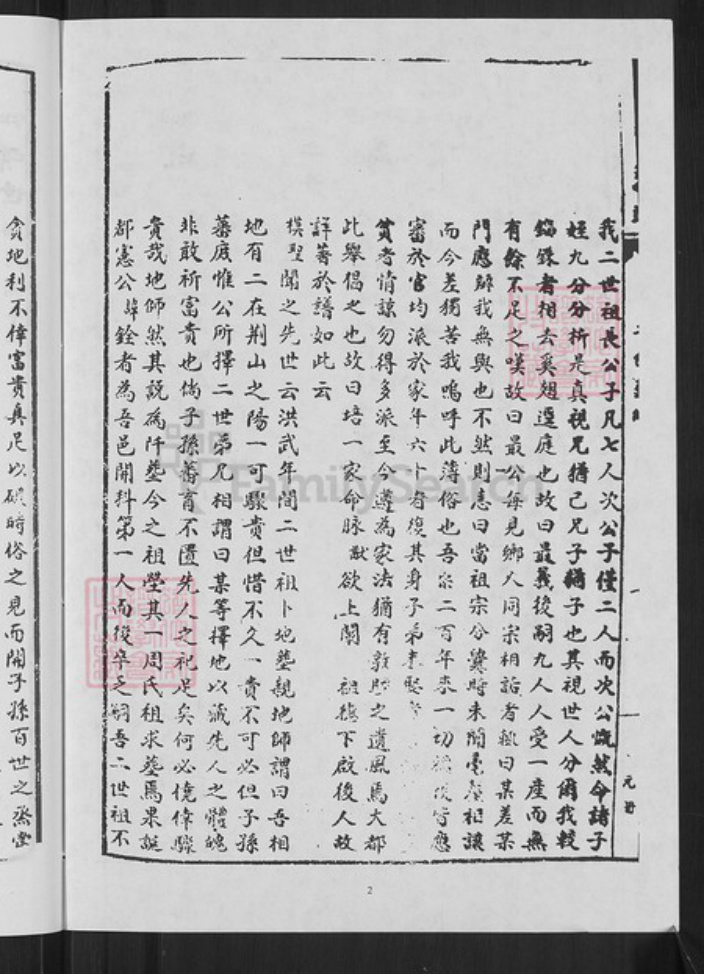 我二世祖長公子凡七人次公子僅二人而次公慨然令諸子
姪九分分析是真視兄猶己兄子猶子也其視世人分爾我較
錙銖者相去奚翅逕庭也故曰最義後嗣九人人受一產而無
有餘不足之嘆故曰最公每見鄉人同宗相詬者輒曰某差某
門應辦我無與也不然則恚曰當祖宗分爨時未聞毫釐相讓
而今差獨苦我嗚呼此薄俗也吾宗二百年來一切 皆應
審於官均派於家年六十者復其身子弟
貧者情諒勿得多派至今遵為家法猶有敦睦之遺風焉大都
此舉倡之也故曰培一家命脉 欲上闡 祖德下啟後人故
詳著於譜如此云
模聖聞之先世云洪武年間二世祖卜地塟親地師謂曰吾相
地有二在荆山之陽一可驟貴但惜不久一貴不可必但子孫
蕃庶惟公所擇二世弟兄相謂曰某等擇地以藏先人之體魄
非敢祈富貴也倘子孫蕃育不匱先人之祀足矣何必僥倖驟
貴哉地師然其説為阡塟今之祖塋其一周氏祖求塟焉果誕
都憲公諱銓者為吾邑開科第一人而後卒乏嗣吾二世祖不
元冊
貪地利不倖富貴真足以破時俗之見而開子孫百世之烝嘗
FamilySearch
2